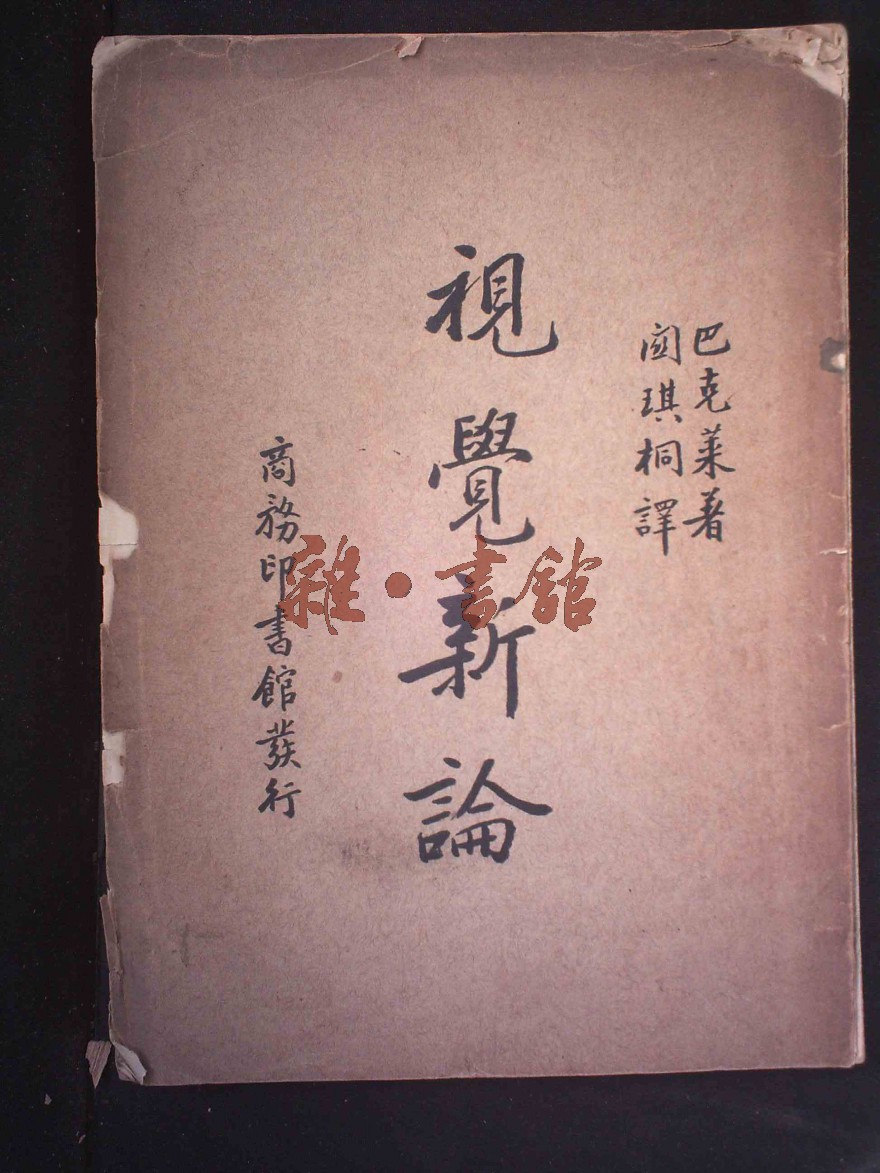 巴克萊著
關琪桐譯
視覺新論
商務印書館發行
雜·書館